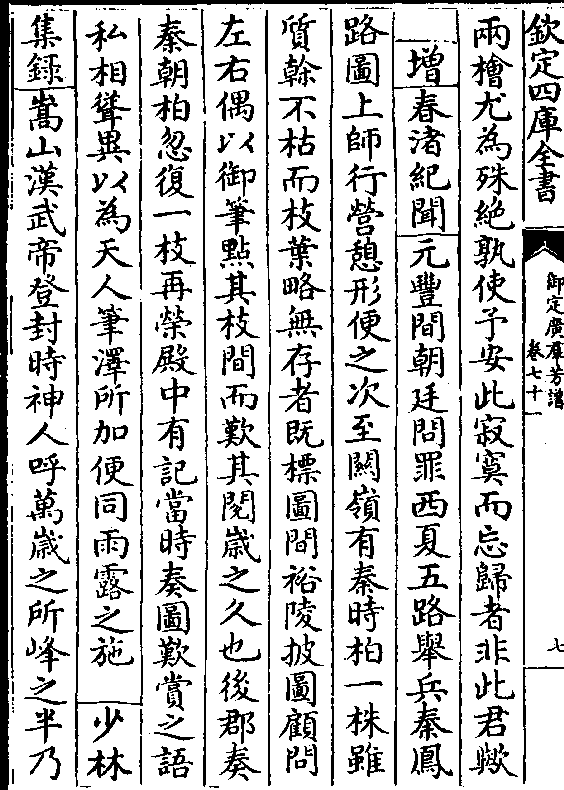 欽定四庫全書
御定廣羣芳譜
卷七十
七
兩檜尤為殊絶孰使予安此寂寞而忘歸者非此君歟
增春渚紀聞元豐間朝廷問罪西夏五路舉兵秦鳳
路圖上師行營憩形便之次至關嶺有秦時柏一株雖
質榦不枯而枝葉略無存者既標圖間裕陵披圖顧問
左右偶以御筆點其枝間而歎其閱歲之久也後郡奏
秦朝柏忽復一枝再榮殿中有記當時奏圖歎賞之語
私相聳異以為天人筆澤所加便同雨露之施　少林
集録嵩山漢武帝登封時神人呼萬歲之所峰之半乃